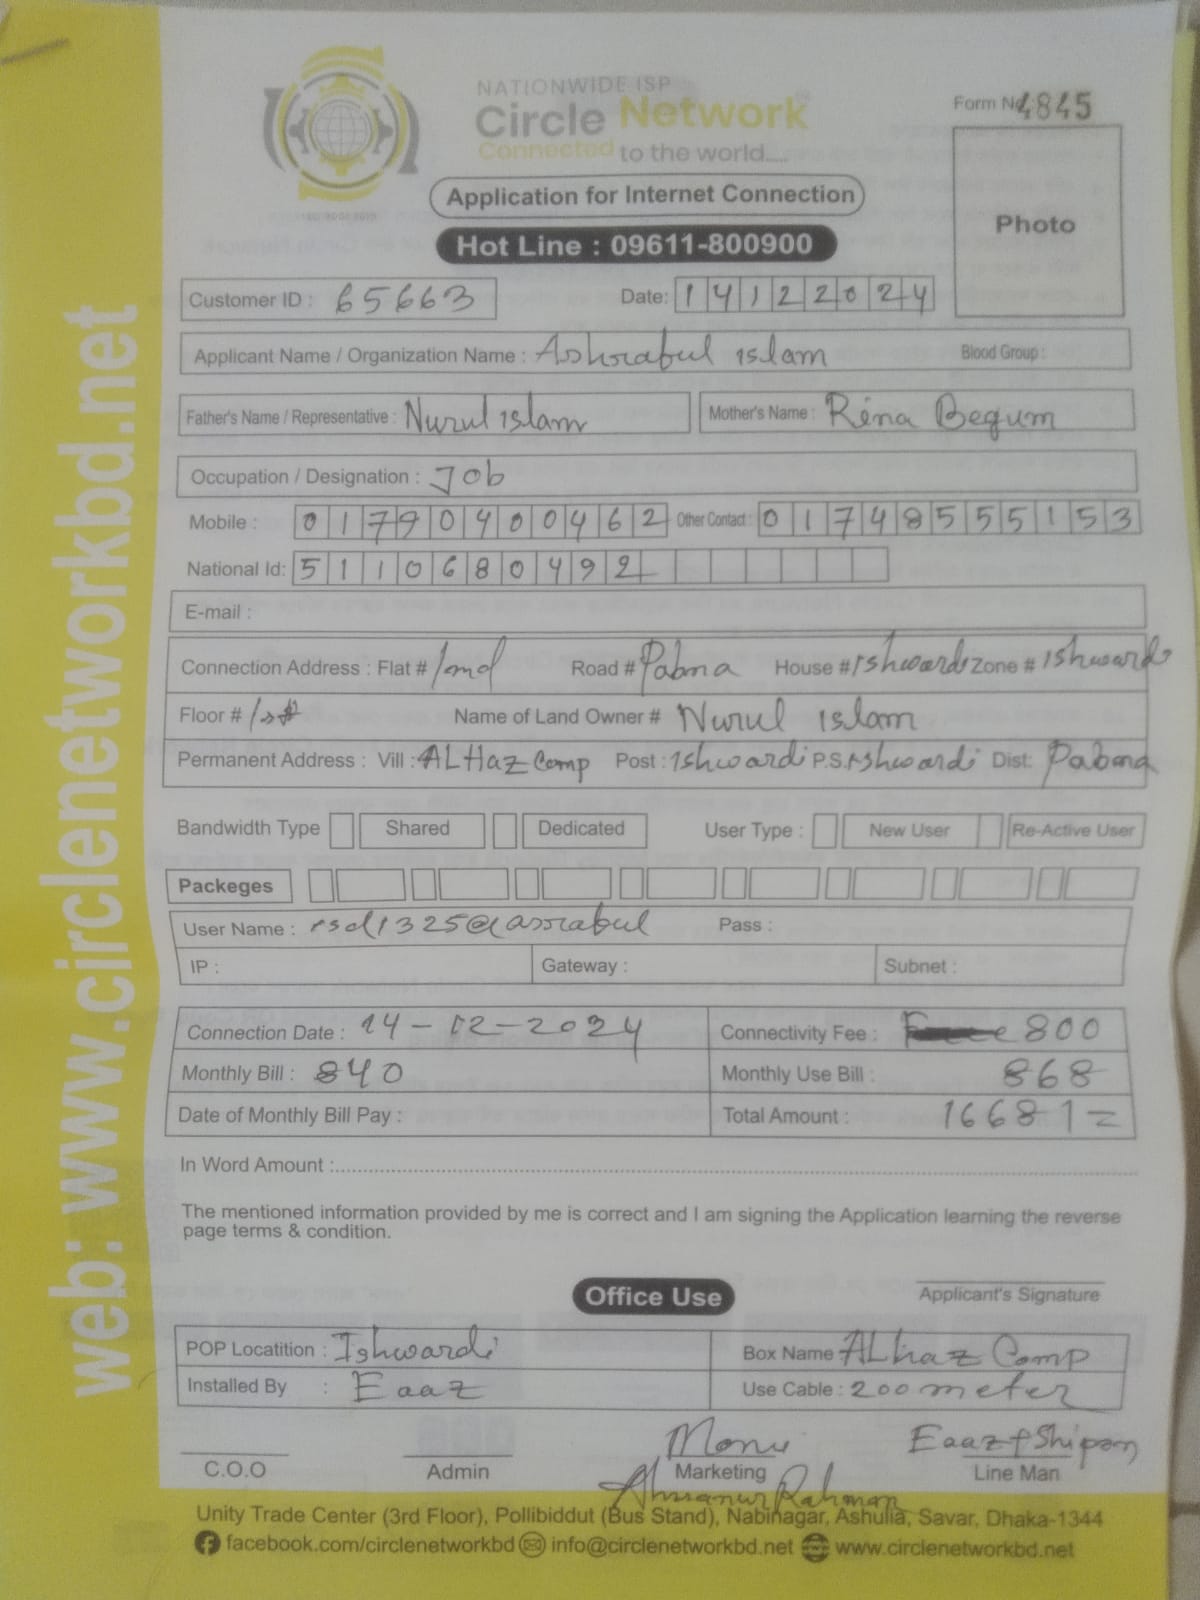 NATIONWIDE ISP
Circle Network
Connected to the world....
Form No 4845
Photo
Application for Internet Connection
Hot Line : 09611-800900
Customer ID : 65663 Date: 14122024
Applicant Name / Organization Name : Ashrabul islam Blood Group :
Father's Name / Representative : Nurul islam Mother's Name : Rena Begum
Occupation / Designation : Job
Mobile : 01790400462 Other Contact : 01748555153
National Id: 5110680492
E-mail :
Connection Address : Flat # Road # Pabna House # Ishwardi Zone # Ishwardi
Floor # Name of Land Owner # Nurul islam
Permanent Address : Vill : ALHaz Comp Post : Ishwardi P.S. Ishwardi Dist: Pabna
Bandwidth Type Shared Dedicated User Type : New User Re-Active User
Packeges
User Name : rsd1325@asrabul Pass :
IP : Gateway : Subnet :
Connection Date : 14-12-2024 Connectivity Fee : 800
Monthly Bill : 840 Monthly Use Bill : 868
Date of Monthly Bill Pay : Total Amount : 1668/=
In Word Amount :
The mentioned information provided by me is correct and I am signing the Application learning the reverse
page terms & condition.
Office Use
Applicant's Signature
POP Locatition : Ishwardi Box Name ALhaz Comp
Installed By : Eaaz Use Cable : 200 meter
Monu Eaaz+Shipon
C.O.O Admin Marketing Line Man
Rahman
Unity Trade Center (3rd Floor), Pollibiddut (Bus Stand), Nabinagar, Ashulia, Savar, Dhaka-1344
facebook.com/circlenetworkbd info@circlenetworkbd.net www.circlenetworkbd.net
web: www.circlenetworkbd.net